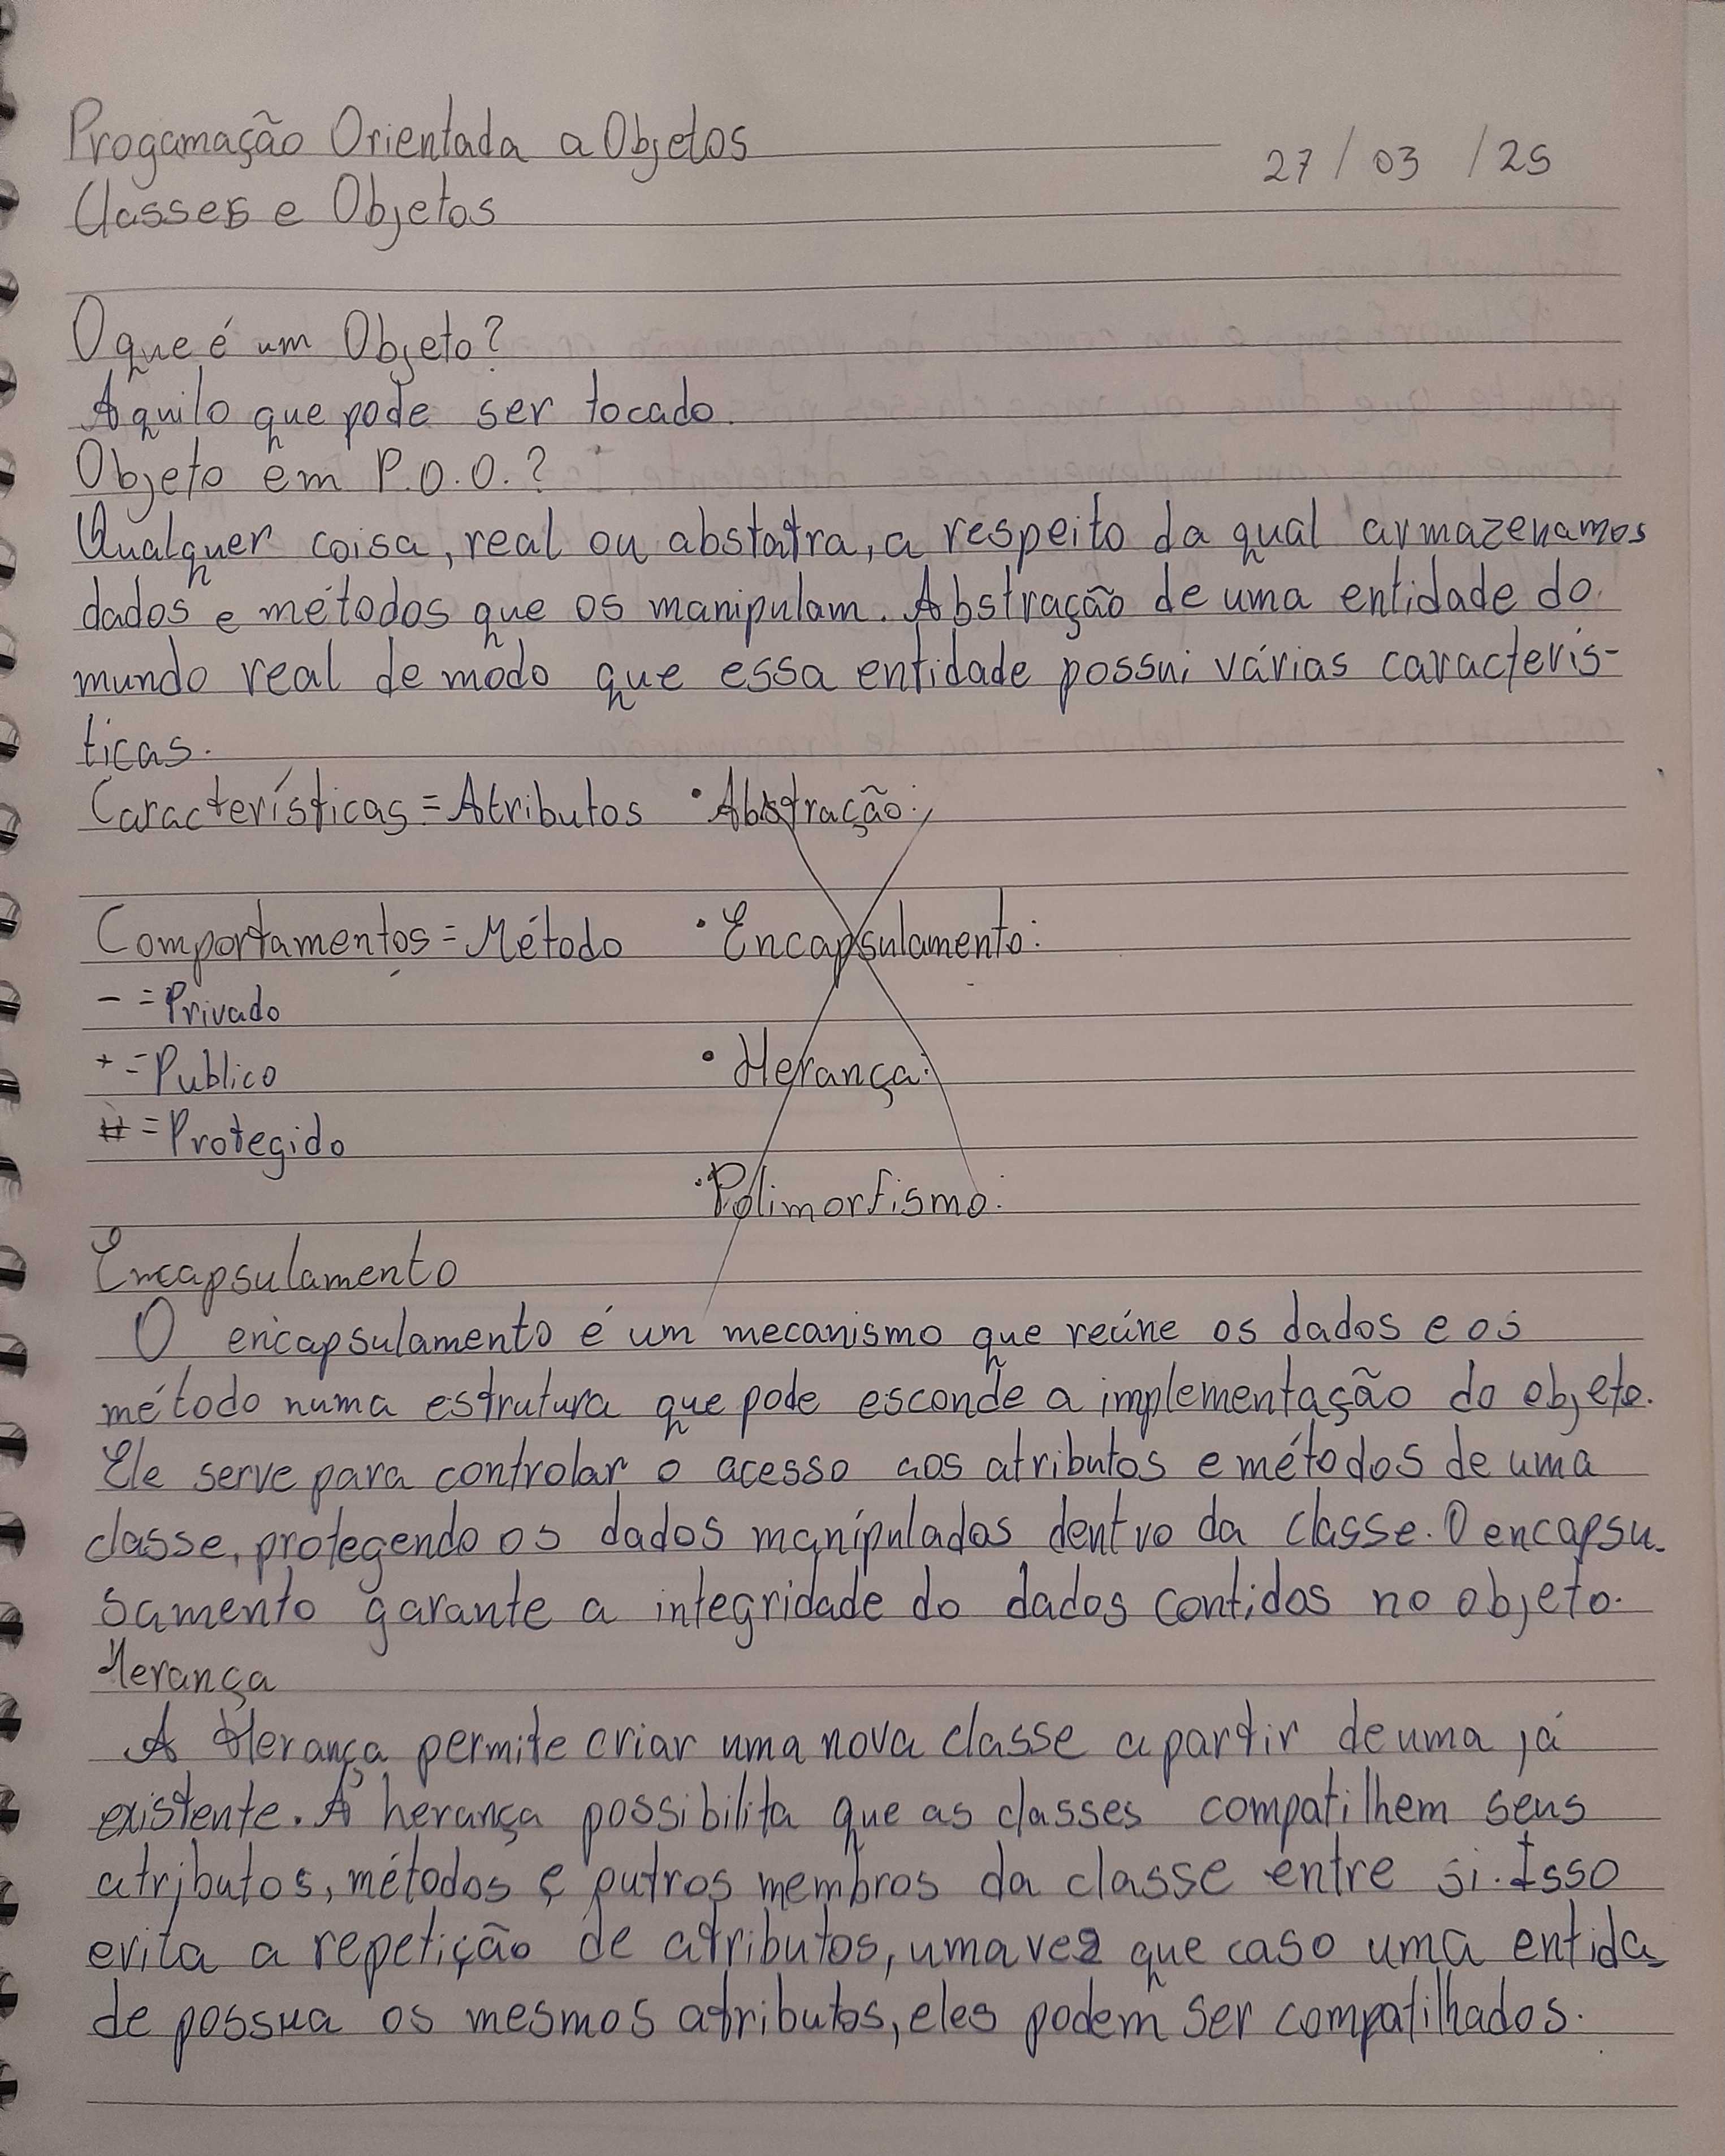 Progamação Orientada a Objetos 27/03/25
Classes e Objetos
O que é um Objeto?
Aquilo que pode ser tocado.
Objeto em P.O.O.?
Qualquer coisa, real ou abstatra, a respeito da qual armazenamos
dados e métodos que os manipulam. Abstração de uma entidade do
mundo real de modo que essa entidade possui várias caracterís-
ticas.
Características = Atributos • Abstração:
Comportamentos = Método • Encapsulamento:
- = Privado
+ = Publico
• Herança:
# = Protegido
• Polimorfismo:
Encapsulamento
O encapsulamento é um mecanismo que reúne os dados e os
método numa estrutura que pode esconde a implementação do objeto.
Ele serve para controlar o acesso aos atributos e métodos de uma
classe, protegendo os dados manipulados dentro da classe. O encapsu-
samento garante a integridade do dados contidos no objeto.
Herança
A Herança permite criar uma nova classe a partir de uma já
existente. A herança possibilita que as classes compatilhem seus
atributos, métodos e outros membros da classe entre si. Isso
evita a repetição de atributos, uma vez que caso uma entida-
de possua os mesmos atributos, eles podem ser compatilhados.